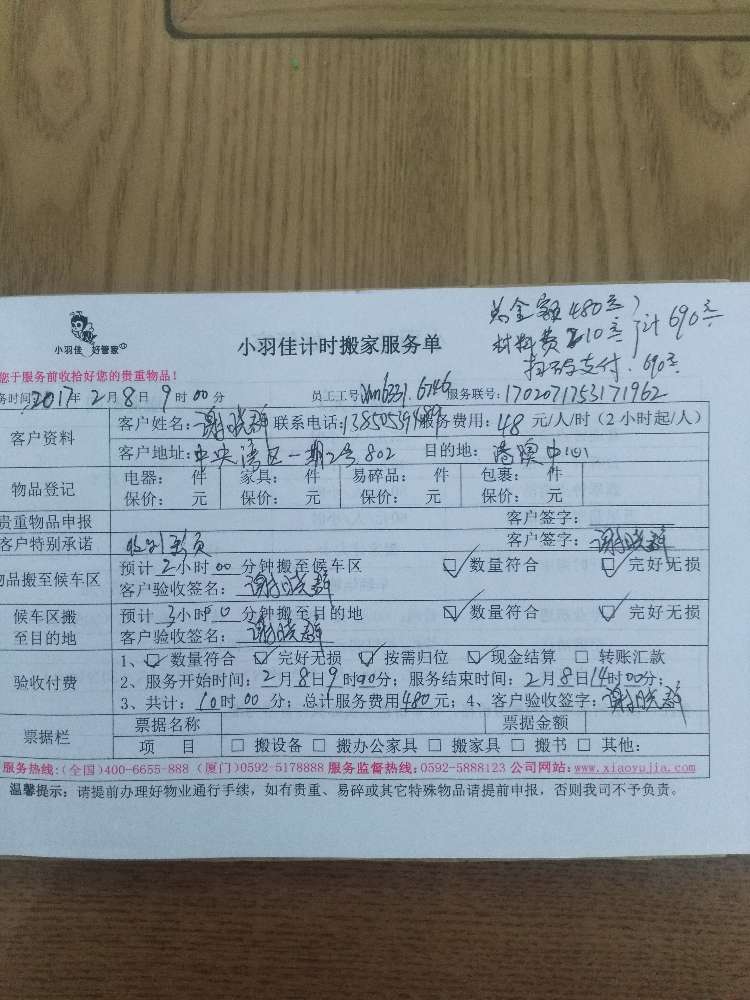 总金额480元
材料费210元 计690元
扫码支付.690元
小羽佳 好管家
小羽佳计时搬家服务单
您于服务前收拾好您的贵重物品!
务时间:2017年2月8日9时00分 员工工号 服务联号:1702071753171962
客户资料
客户姓名:谢晓群 联系电话: 服务费用:48元/人/时(2小时起/人)
客户地址:中央湾区一期2号802 目的地:港澳中心
物品登记
电器: 件 家具: 件 易碎品: 件 包裹: 件
保价: 元 保价: 元 保价: 元 保价: 元
贵重物品申报 客户签字:
客户特别承诺 客户签字:谢晓群
物品搬至候车区
预计2小时00分钟搬至候车区 ☑数量符合 ☑完好无损
客户验收签名:谢晓群
候车区搬至目的地
预计3小时00分钟搬至目的地 ☑数量符合 ☑完好无损
客户验收签名:谢晓群
验收付费
1、☑数量符合 ☑完好无损 ☑按需归位 ☑现金结算 □转账汇款
2、服务开始时间:2月8日9时00分;服务结束时间:2月8日14时00分;
3、共计:10时00分;总计服务费用480元;4、客户验收签字:谢晓群
票据栏
票据名称 票据金额
项 目 □搬设备 □搬办公家具 □搬家具 □搬书 □其他:
服务热线:(全国)400-6655-888 (厦门)0592-5178888 服务监督热线:0592-5888123 公司网站:www.xiaoyujia.com
温馨提示:请提前办理好物业通行手续,如有贵重、易碎或其它特殊物品请提前申报,否则我司不予负责。